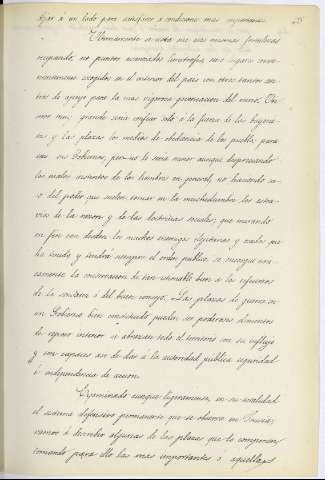 dejar á un lado para satisfacer á condiciones mas importantes.
45
Ultimamente se nota que sus mismas fronteras
ocupando, no puntos avanzados limítrofes, sino lugares conve-
nientemente escogidos en el interior del pais con otros tantos cen-
tros de apoyo para la mas vigorosa gobernacion del mismo. Er-
ror muy grande seria confiar solo á la fuerza de las bayone-
tas y las plazas los medios de obediencia de los pueblos para
con sus Gobiernos, pero no lo será menor aunque despreciando
los malos instintos de los hombres en general, no haciendo ca-
so del poder que suelen tomar en la muchedumbre los estra-
vios de la razon y de las doctrinas sociales; que mirando
en fin con desden los muchos enemigos ilegitimos y malos que
ha tenido y tendrá siempre el orden publico, se encargue úni-
camente la conservacion de tan estimable bien á los esfuerzos
de la cordura ó del buen consejo. Las plazas de guerra en
un Gobierno bien constituido pueden ser poderosos elementos
de regimen interior si abrazan todo el territorio con su influjo
y son capaces asi de dar á la autoridad pública seguridad
é independencia de accion.
Examinado aunque ligeramente, en su totalidad
el sistema defensivo permanente que se observa en Prusia,
vamos á describir algunas de las plazas que lo componen
tomando para ello las mas importantes ó aquellas